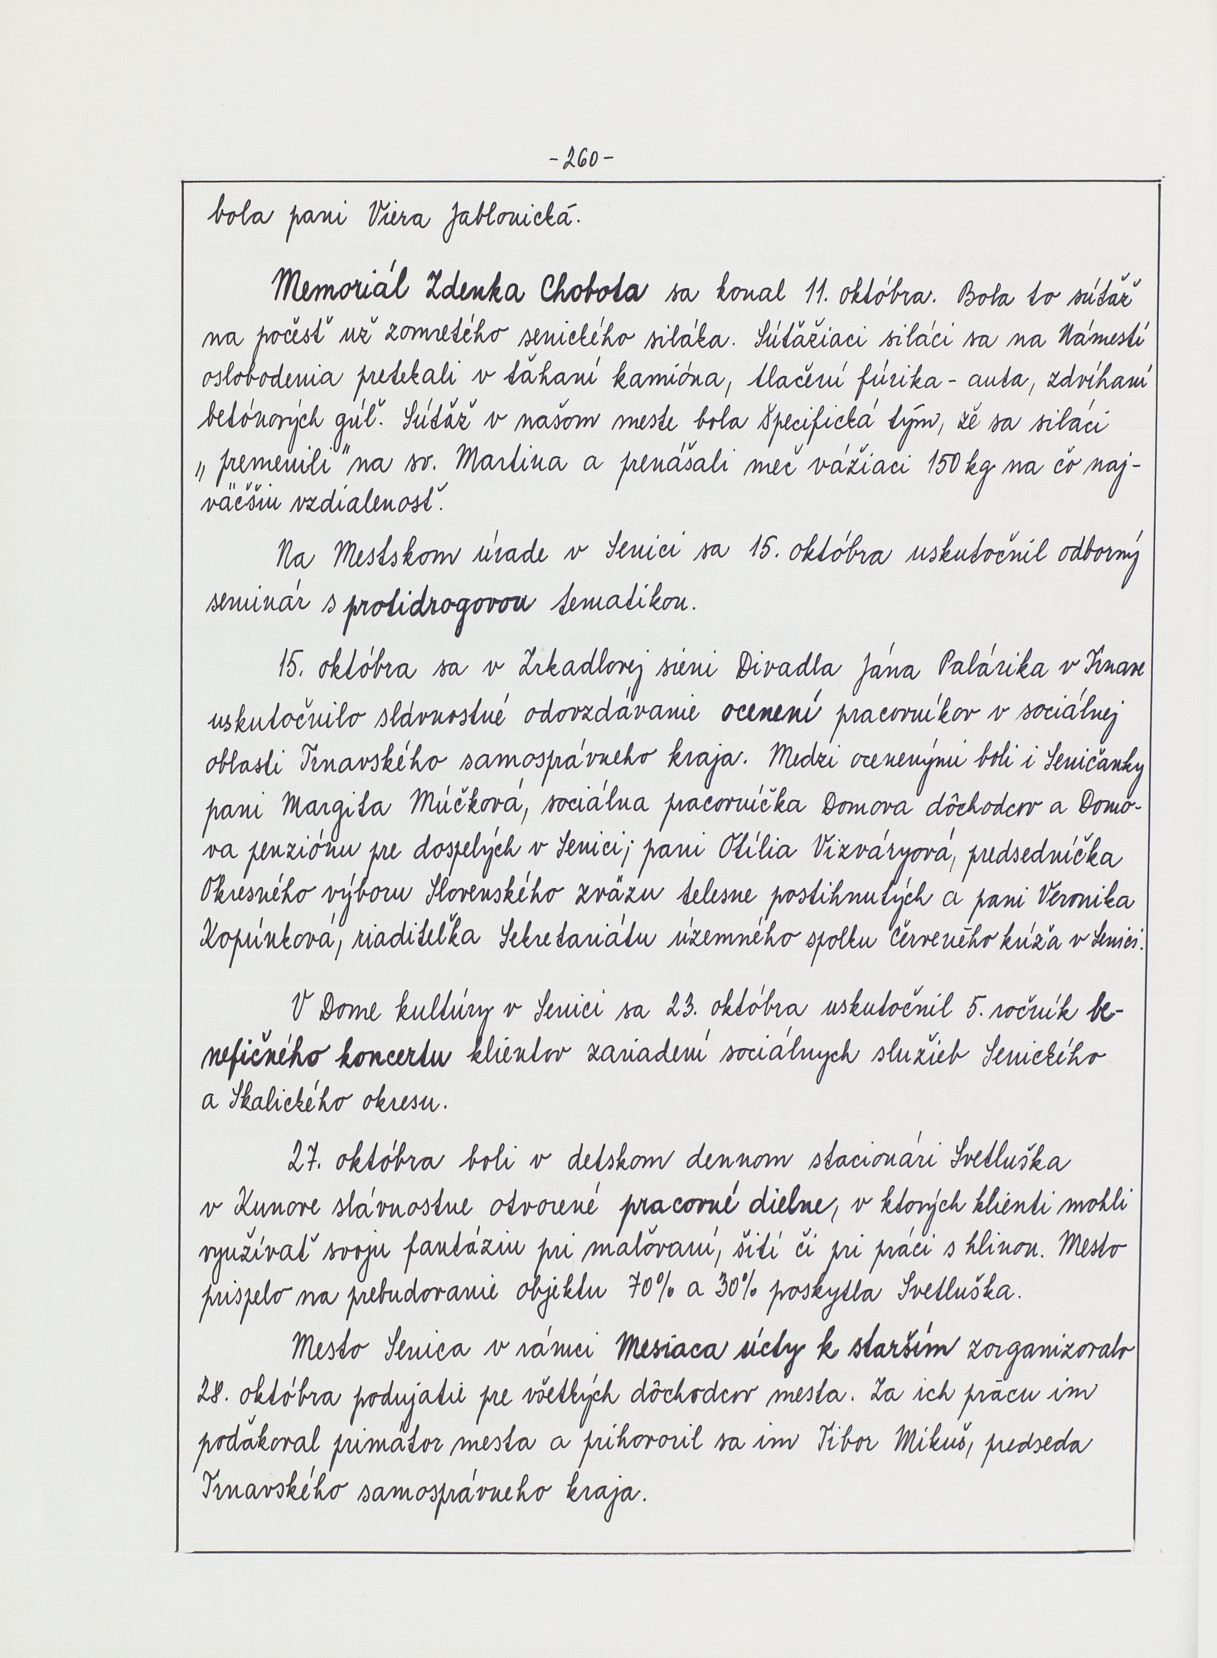 -260-
bola pani Viera Jablonická.
Memoriál Zdenka Chobota sa konal 11. októbra. Bola to súťaž
na počesť už zomretého senického siláka. Súťažiaci siláci sa na Námestí
oslobodenia pretekali v ťahaní kamióna, tlačení fúrika - auta, zdvíhaní
betónových gúľ. Súťaž v našom meste bola špecifická tým, že sa siláci
„premenili" na sv. Martina a prenášali meč vážiaci 150 kg na čo naj-
väčšiu vzdialenosť.
Na Mestskom úrade v Senici sa 15. októbra uskutočnil odborný
seminár s protidrogovou tematikou.
15. októbra sa v Zrkadlovej sieni Divadla Jána Palárika v Trnave
uskutočnilo slávnostné odovzdávanie ocenení pracovníkov v sociálnej
oblasti Trnavského samosprávneho kraja. Medzi ocenenými boli i Seničanky
pani Margita Múčková, sociálna pracovníčka Domova dôchodcov a Domo-
va penziónu pre dospelých v Senici; pani Otília Vizváryová, predsedníčka
Okresného výboru Slovenského zväzu telesne postihnutých a pani Veronika
Kopúnková, riaditeľka Sekretariátu územného spolku Červeného kríža v Senici.
V Dome kultúry v Senici sa 23. októbra uskutočnil 5. ročník be-
nefičného koncertu klientov zariadení sociálnych služieb Senického
a Skalického okresu.
27. októbra boli v detskom dennom stacionári Svetluška
v Kunove slávnostne otvorené pracovné dielne, v ktorých klienti mohli
využívať svoju fantáziu pri maľovaní, šití či pri práci s hlinou. Mesto
prispelo na prebudovanie objektu 70% a 30% poskytla Svetluška.
Mesto Senica v rámci Mesiaca úcty k starším zorganizovalo
28. októbra podujatie pre všetkých dôchodcov mesta. Za ich prácu im
poďakoval primátor mesta a prihovoril sa im Tibor Mikuš, predseda
Trnavského samosprávneho kraja.